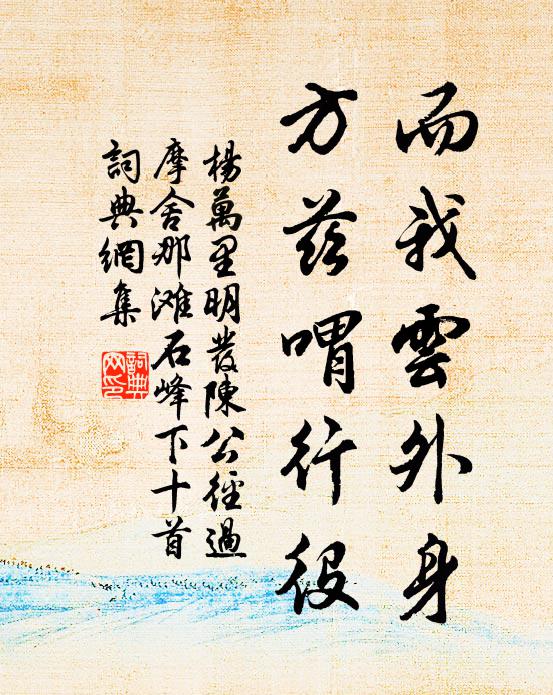 而我雲外身
方茲喟行役
楊萬里明發陳公徑過
摩舍那滩石峰下十首
詞典網集
詞典
网印